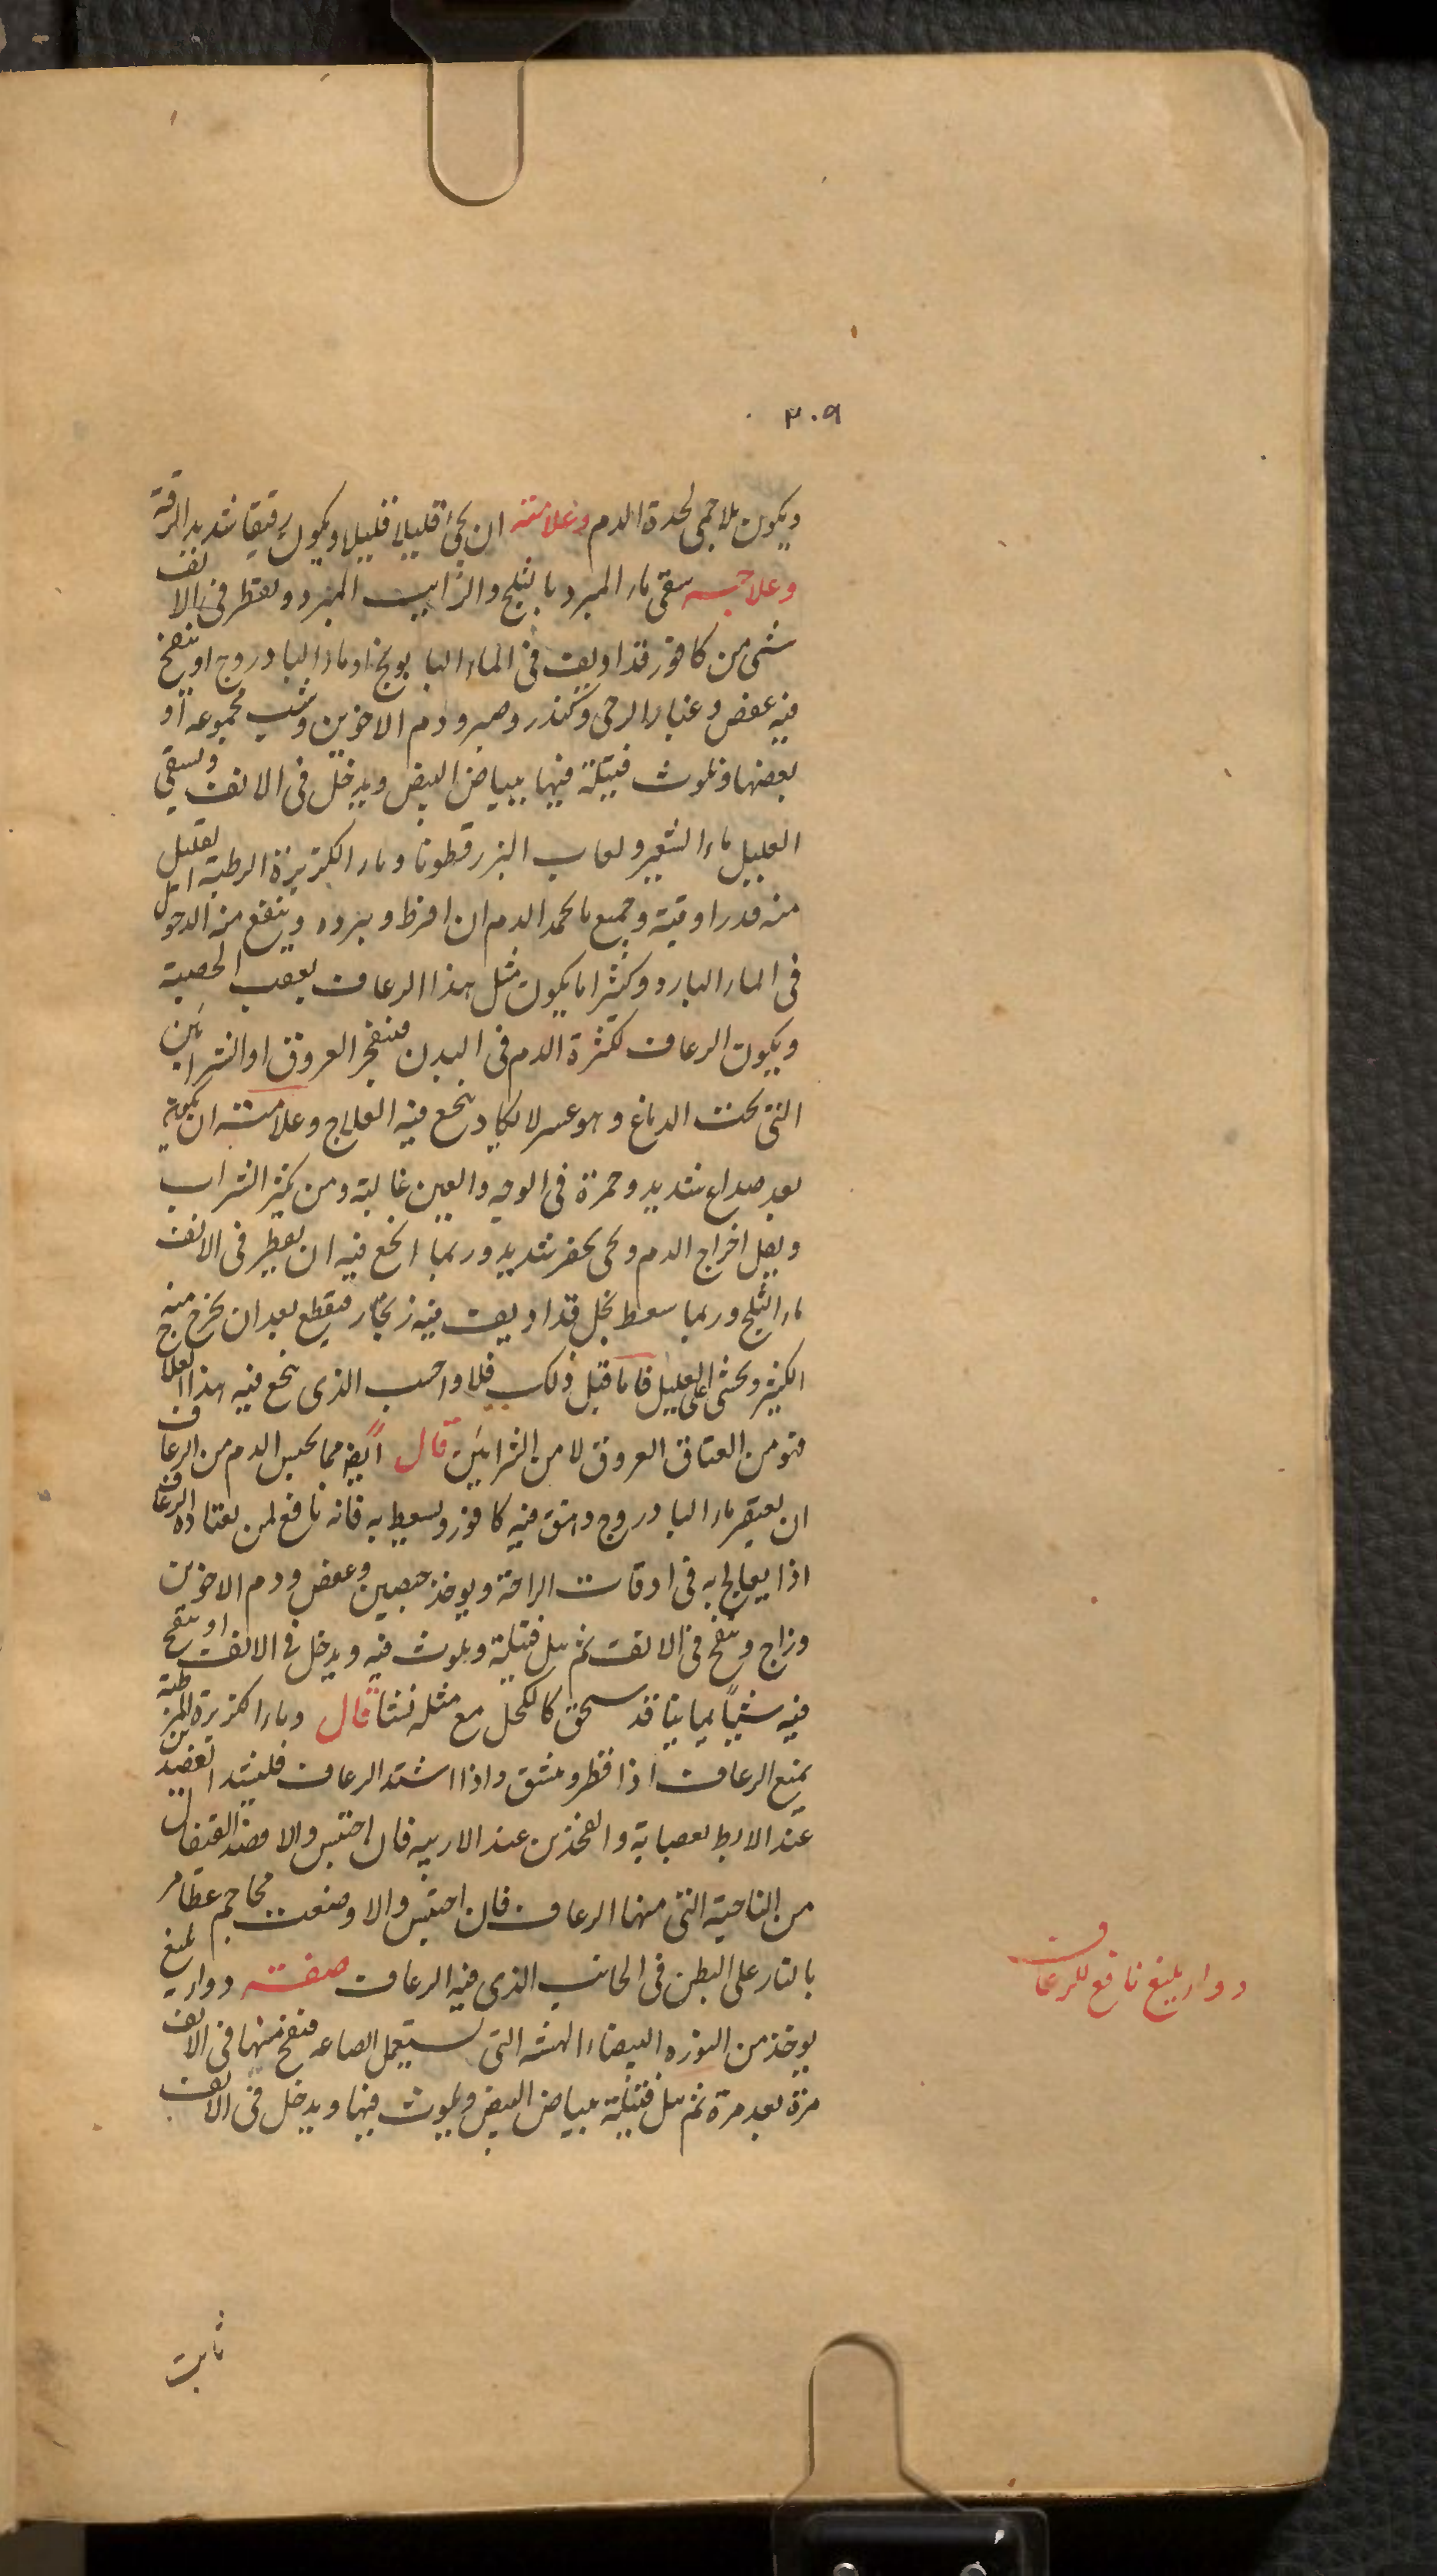 ٣٠٩
ويكون بلا حمى لحدة الدم وعلامته ان يجئ قليلا قليلا ويكون رقيقا شديد الرقة
وعلاجه سقى ماء المبرد بالثلج والرائيب المبرد ويقطر فى الانف
شئ من كافور قد اديف فى الماء البابونج او ماء البادروج او ينفخ
فيه عفص وغبار الرحى وكندر وصبر ودم الاخوين وشب مجموعه او
بعضها وتلوث فتيلة فيها ببياض البيض ويدخل فى الانف ويسقى
العليل ماء الشعير ولعاب البزرقطونا وماء الكزبرة الرطبة لعليل
منه قدر اوقية وجميع ما يجمد الدم ان افرط ويبرده وينفع منه الدخول
فى الماء البارد وكثيرا ما يكون مثل هذا الرعاف بعقب الحصبة
ويكون الرعاف لكثرة الدم فى البدن فينفجر العروق او الشرايين
التى تحت الدماغ وهو عسر لا يكاد ينجع فيه العلاج وعلامته ان يكون
بعد صداع شديد وحمرة فى الوجه والعين غالبة ومن يكثر الشراب
ويقل اخراج الدم ويجئ بحفز شديد وربما انجع فيه ان يقطر فى الانف
ماء الثلج وربما سعط بخل قد اديف فيه زنجار فيقطع بعد ان يخرج منه
الكثير ويخشى على العليل فاما قبل ذلك فلا واحسب الذى ينجع فيه هذا العلاج
هو من العتاق العروق لا من الشرايين قال ايضا مما يحبس الدم من الرعاف
ان يعتصر ماء البادروج وافتق فيه كافور ويسعط به فانه نافع لمن يعتاده الرعاف
اذا يعالج به فى اوقات الراحة ويوخذ جبسين وعفص ودم الاخوين
وزاج وينفخ فى الانف ثم بل فتيلة ويلوث فيه ويدخل فى الانف او ينفخ
فيه شيئا يمانيا قد سحق كالكحل مع مثله نشا قال وماء الكزبرة الرطبة
يمنع الرعاف اذا قطر ومشق واذا اشتد الرعاف فليشد العضدين
عند الابط بعصابة والفخذين عند الاربيه فان احتبس والا فصد القيفال
من الناحية التى منها الرعاف فان احتبس والا وضعت محاجم عظام
بالنار على البطن فى الجانب الذى فيه الرعاف صفة دواء بليغ
يوخذ من النوره البيضاء الهشه التى يستعمل الصاعه فينفخ منها فى الانف
مرة بعد مرة ثم بل فتيلة ببياض البيض ويلوث فيها ويدخل فى الانف
دواء بليغ نافع للرعاف
ثابت